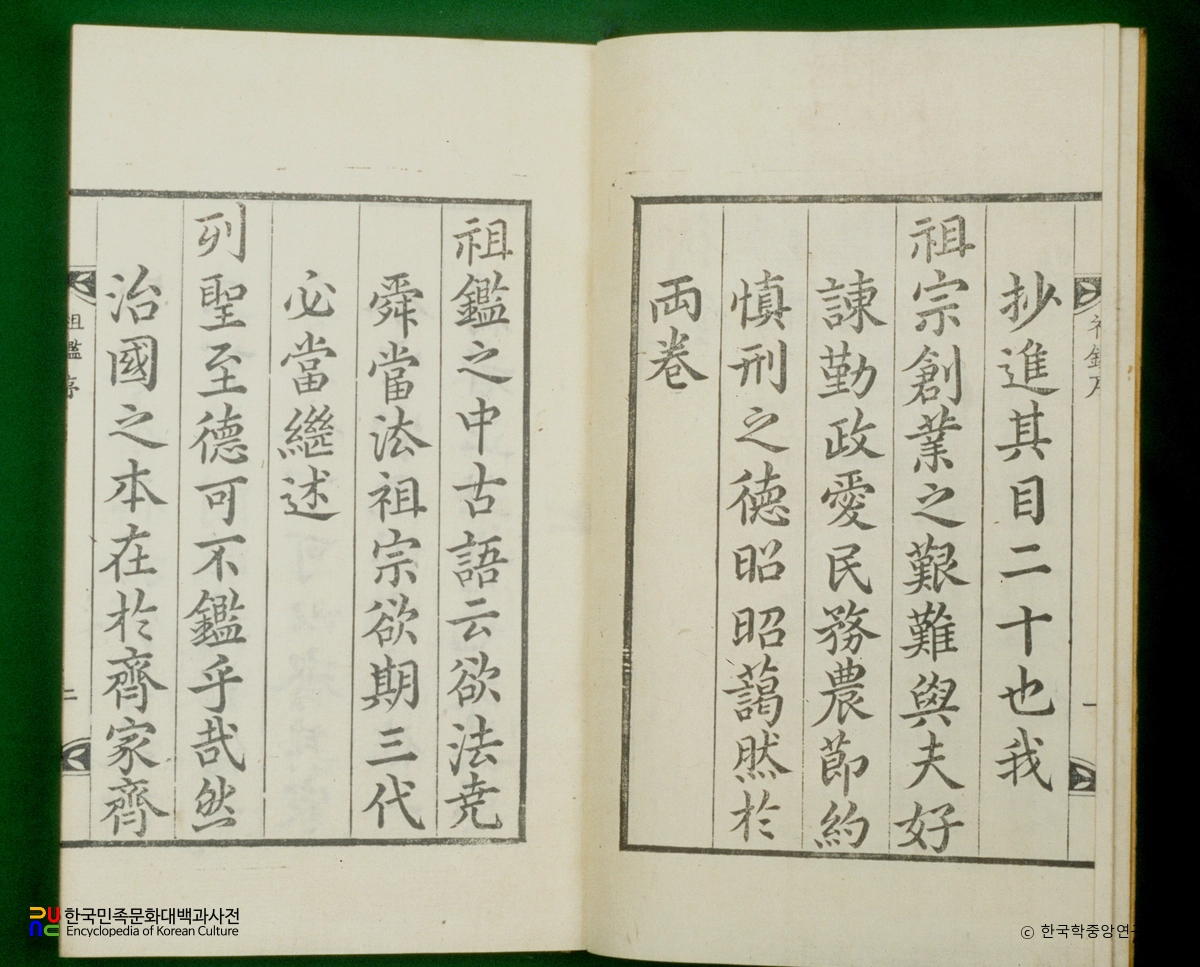 抄進其目二十也我
祖宗創業之艱難與夫好
諫勤政愛民務農節約
慎刑之德昭昭藹然於
兩卷
祖鑑之中古語云欲法堯
舜當法祖宗欲期三代
必當繼述
列聖至德可不鑑乎哉然
治國之本在於齊家齊
祖鑑序
一
祖鑑序
二
한국민족문화대백과사전
Encyclopedia of Korean Culture
© 한국학중앙연